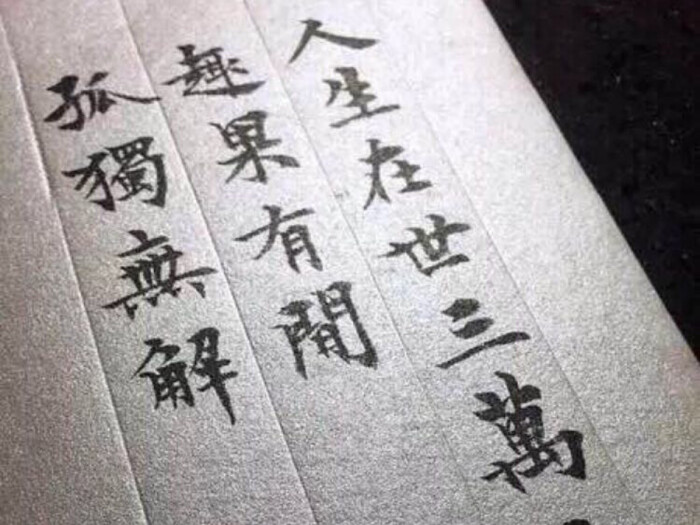 人生在世三萬
趣果有間
孤獨無解